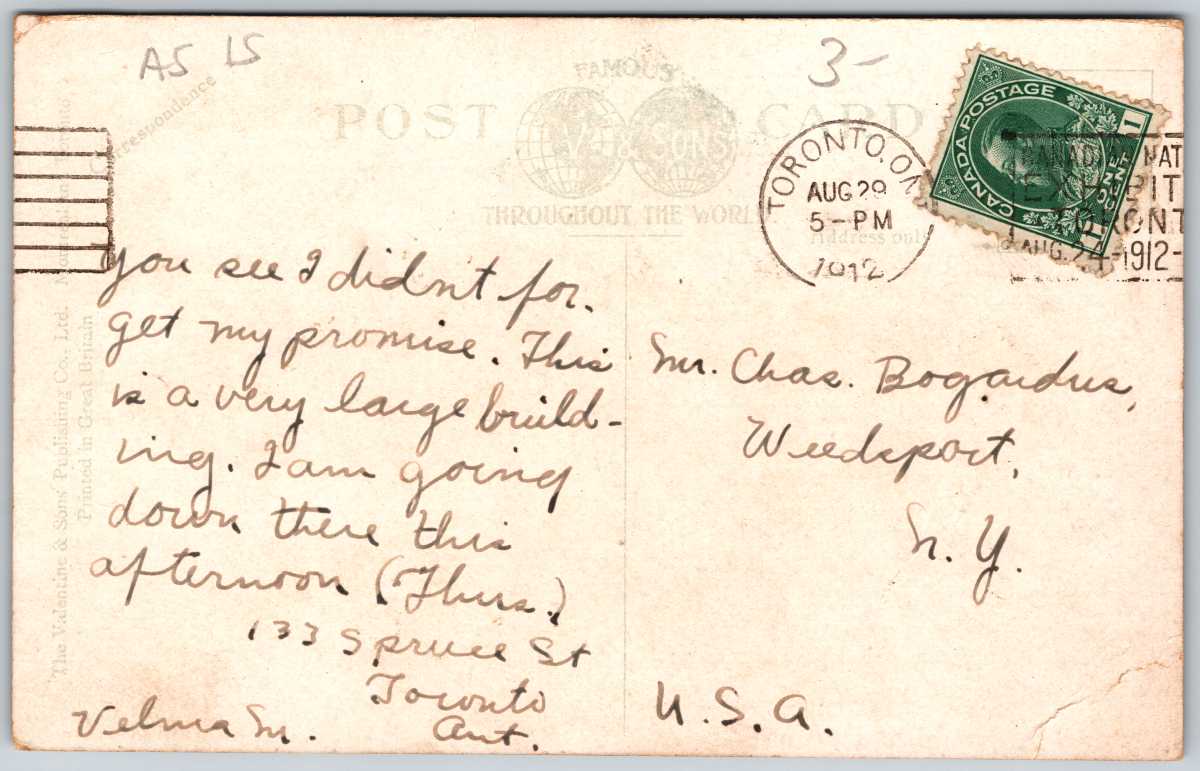 A5 LS
3-
Correspondence
FAMOUS
POST CARD
V & SONS
THROUGHOUT THE WORLD
Address only
TORONTO, ON
AUG 29
5-PM
1912
CANADA POSTAGE
1
ONE CENT
CANADIAN NAT
EXHIBIT
TORONT
AUG. 24-1912-
The Valentine & Sons' Publishing Co., Ltd. Montreal and Toronto
Printed in Great Britain
you see I didn't for-
get my promise. This
is a very large build-
ing. I am going
down there this
afternoon (Thurs.)
133 Spruce St
Toronto
Ont.
Velma M.
Mr. Chas. Bogardus,
Weedsport,
N. Y.
U. S. A.